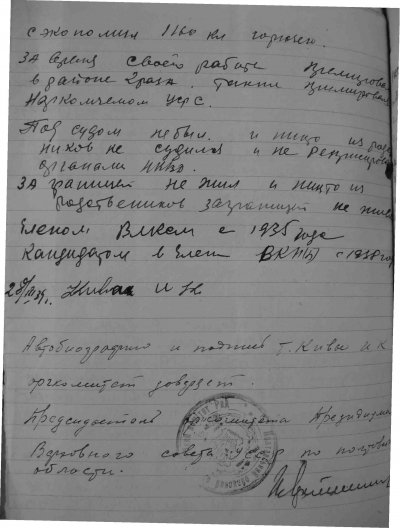 сэкономил 1160 кл горючего.
За время своей работы премирован
в районе 2 раза. Также премирован
Наркомчемом УССР.
Под судом не был. и никто из родст
ников не судился и не репрессирован
органами НКВД.
За границей не жил и никто из
родственников заграницей не живет
Членом ВЛКСМ с 1935 года
Кандидатом в члены ВКП/б/ с 1938 года
Кива И К
Автобиографию и подпись т. Кивы И.К.
оргкомитет доверяет.
Председатель оргкомитета Президиума
Верховного совета УССР по полтавск
области.